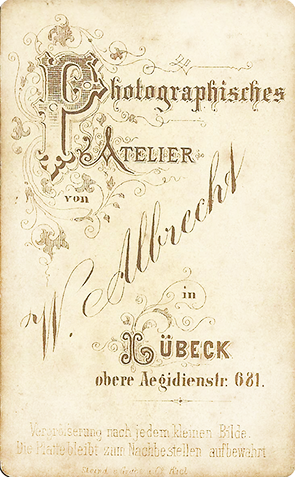 Photographisches
Atelier
von
W. Albrecht
in
Lübeck
obere Aegidienstr. 681.
Vergrösserung nach jedem kleinen Bilde.
Die Platte bleibt zum Nachbestellen aufbewahrt.